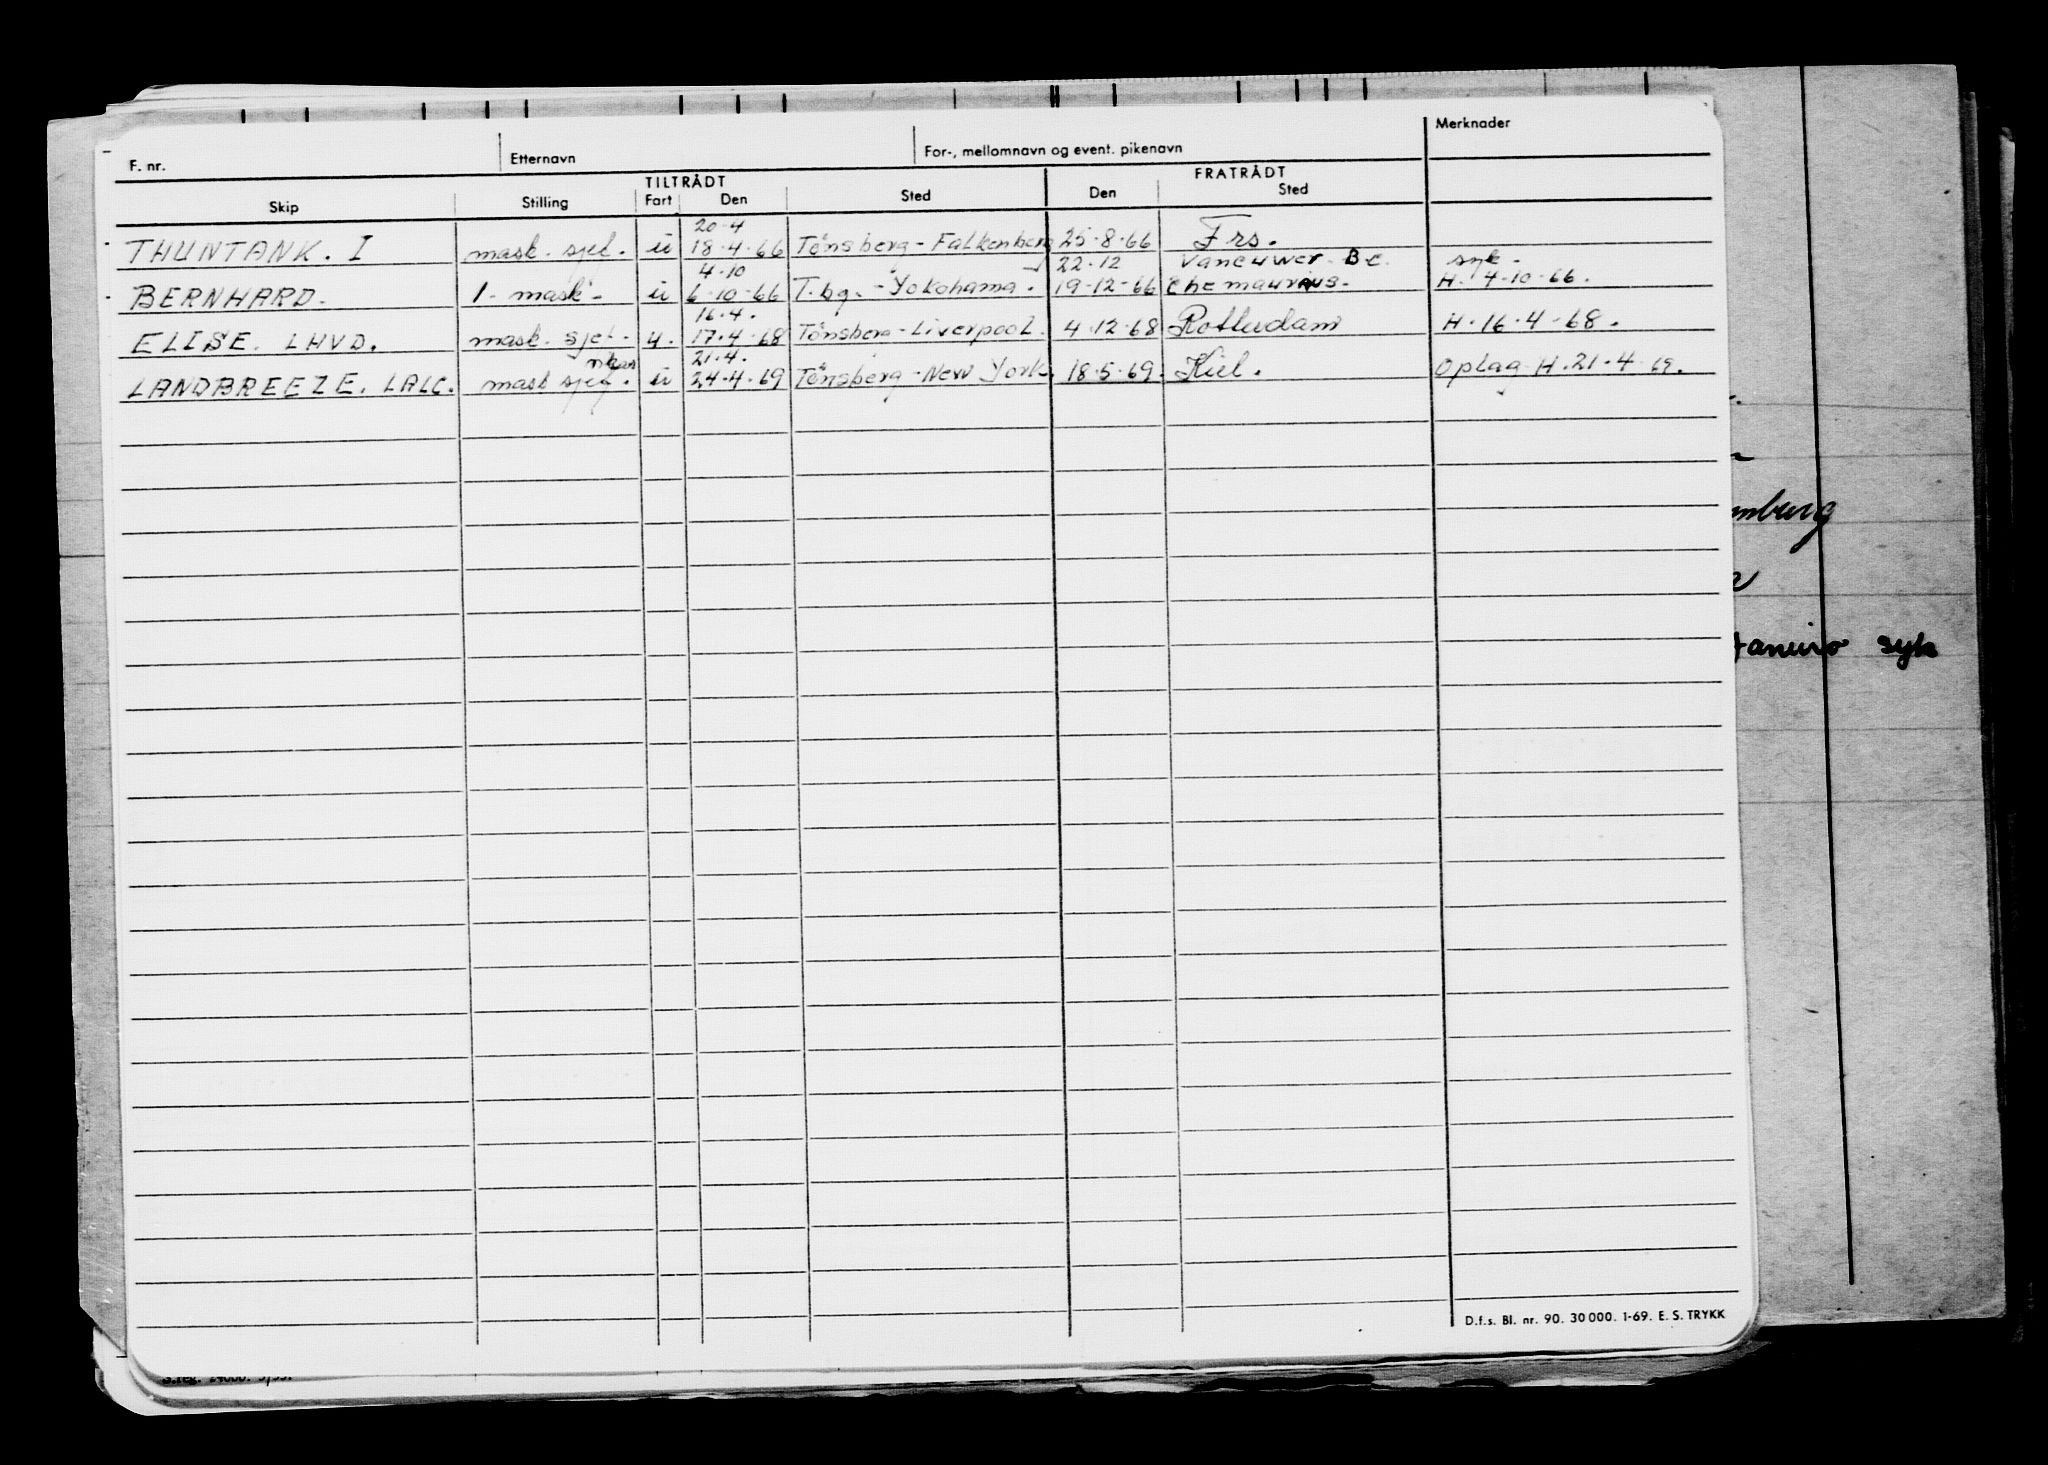 F. nr. Etternavn For-, mellomnavn og event. pikenavn Merknader
TILTRÅDT FRATRÅDT
Skip Stilling Fart Den Sted Den Sted
20-4
THUNTANK. I mask. sjef. u 18-4-66 Tønsberg-Falkenberg 25-8-66 Frs.
4-10 22-12 Vancuwer. BC. syk.
BERNHARD. 1- mask. u 6-10-66 T.bg.-Yokohama. 19-12-66 H. 4-10-66.
16.4.
ELISE. LHVD. mask. sjef. u. 17.4.68 Tønsberg-Liverpool. 4-12-68 Rotterdam H.16-4-68.
21.4.
LANDBREEZE. LALC. mask sjef. u 24-4-69 Tønsberg-New York. 18-5-69. Kiel. Oplag H. 21-4-69.
mburg
Janeiro syk
D.f.s. Bl. nr. 90. 30 000. 1-69. E. S. TRYKK